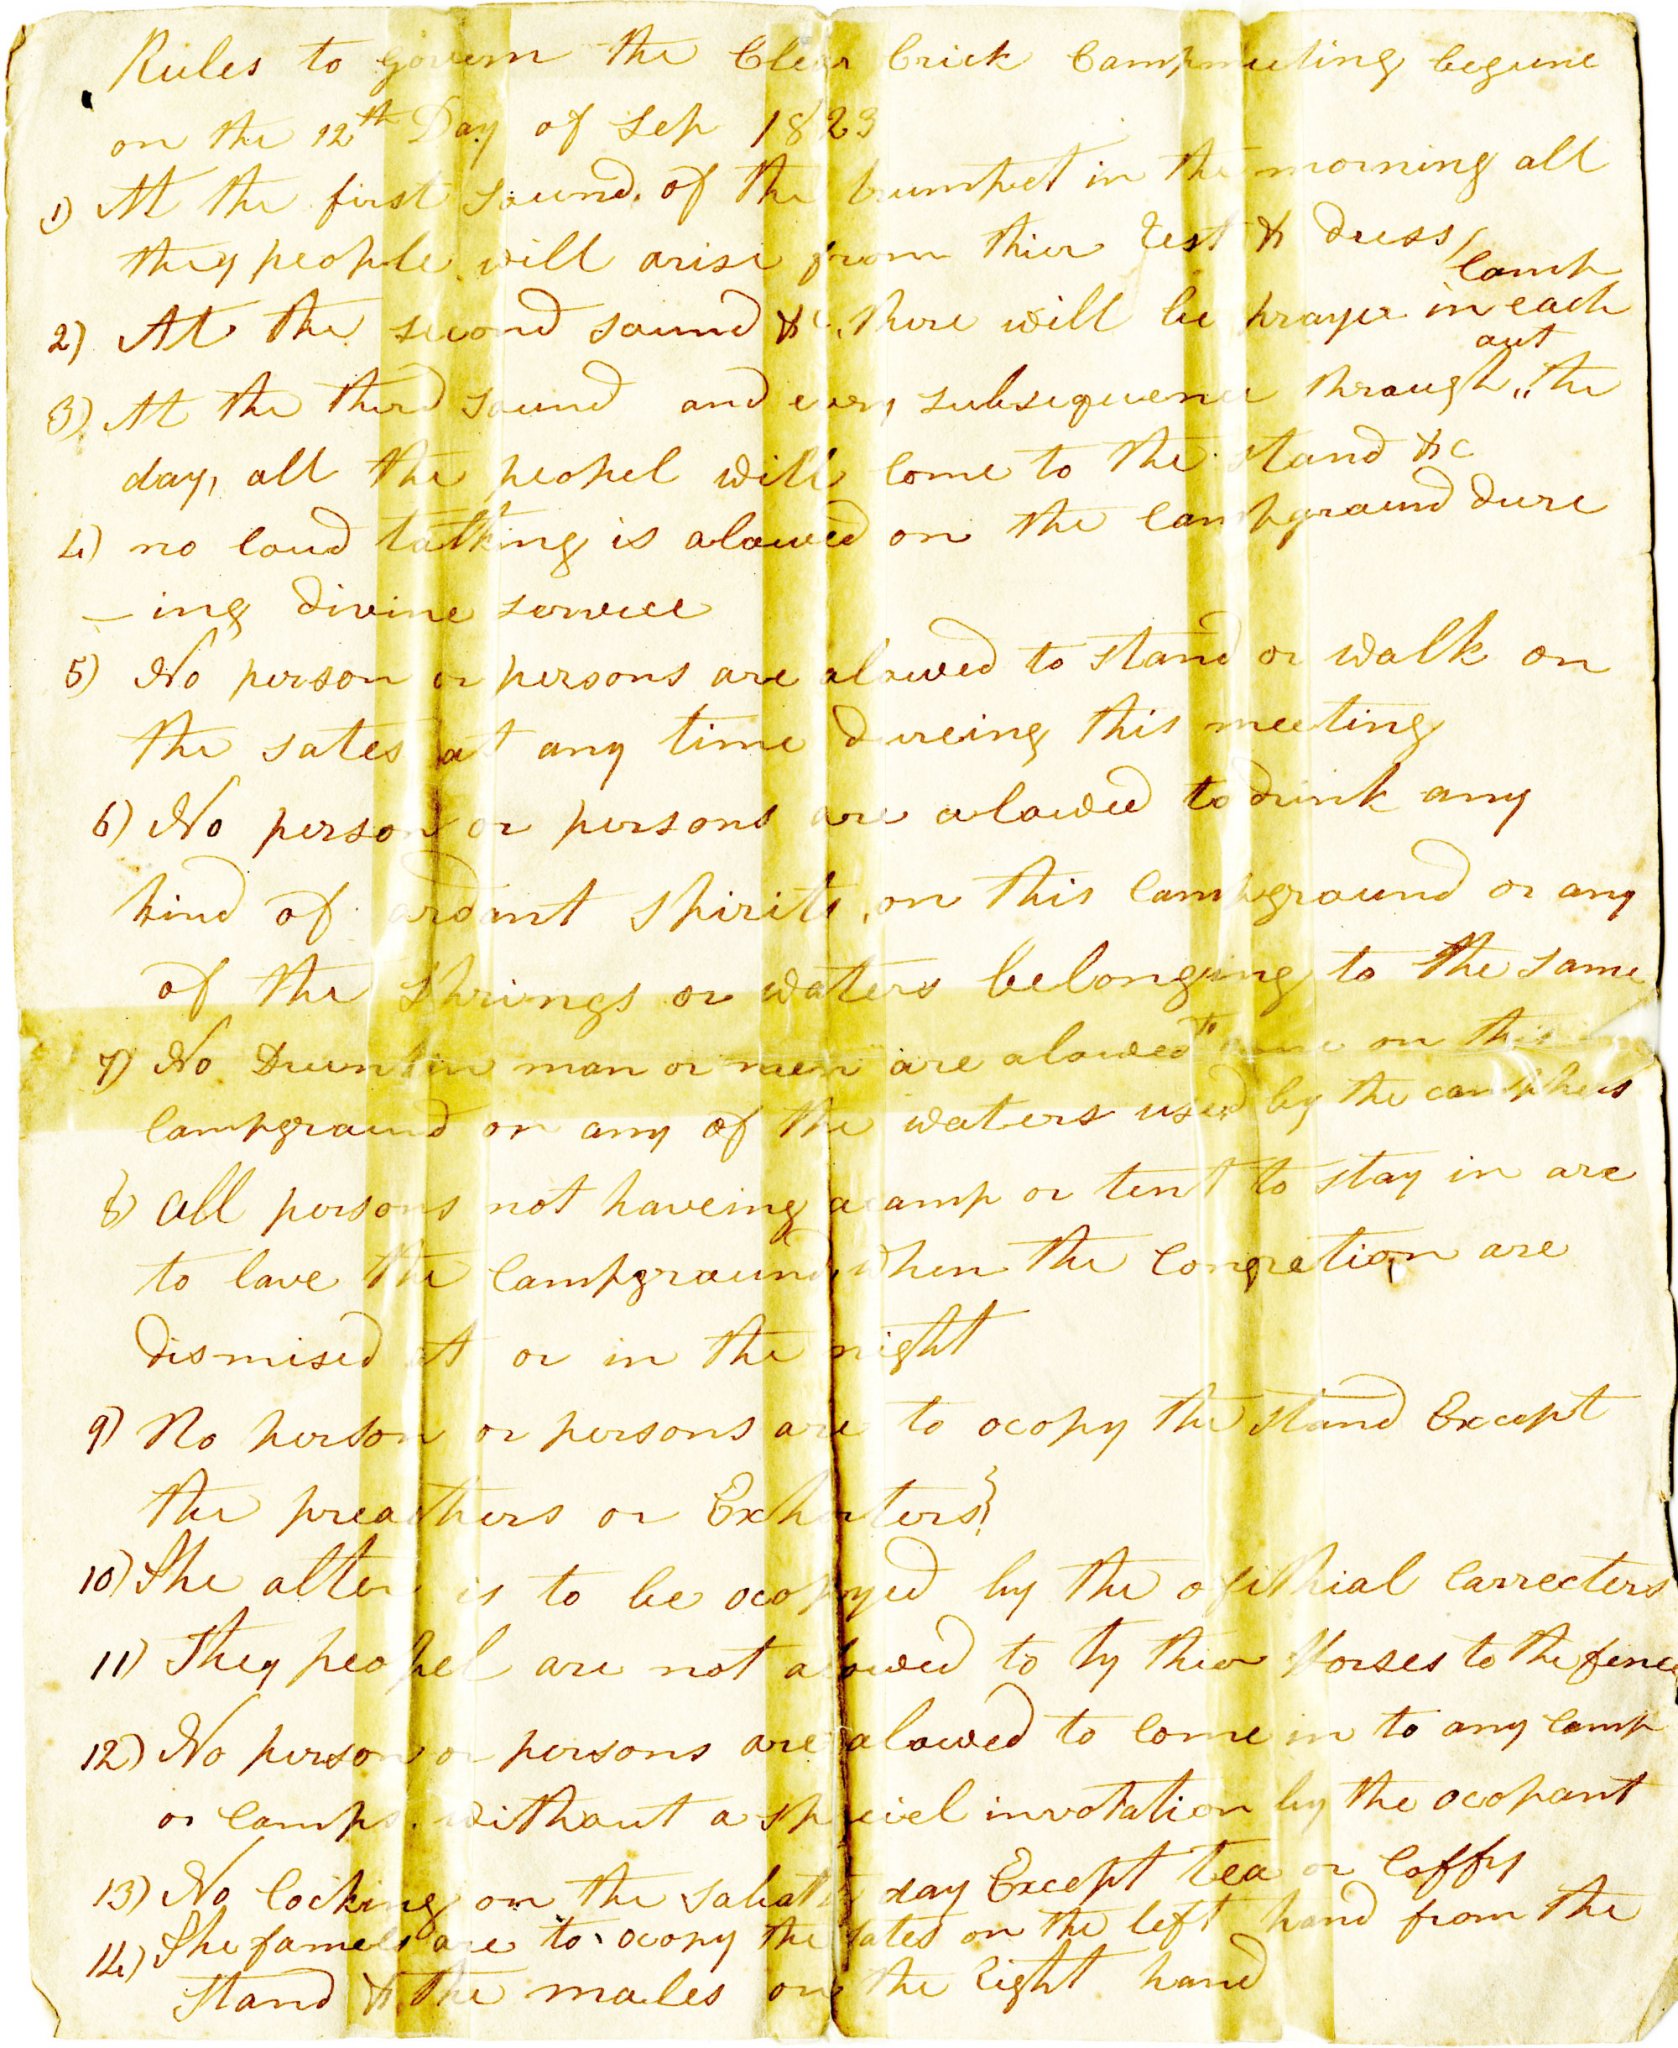 Rules to govern the Clear Crick Campmeeting begune
on the 12th Day of Sep 1823
1) At the first sound, of the trumpet in the morning all
they people will arise from thier Rest & dress,
camp
2) At the second sound &c, there will be prayer in each
out
3) At the third sound and every subsequence through,, the
day, all the peopel will come to the stand &c
4) no loud talking is alowed on the campground dure
-ing divine service
5) No person or persons are alowed to stand or walk on
the sates at any time dureing this meeting
6) No person or persons are alowed to drink any
kind of ardant spirits, on this campground or any
of the springs or waters belonging to the same
7) No Drunken man or men are alowed To come on this
campground or any of the waters used by the camphers
8) all persons not haveing a camp or tent to stay in are
to lave the campground, when the congretion are
dismised at or in the night
9) No person or persons are to ocopy the stand Except
the preachers or Exhorters}
10) The alter is to be ocopyed by the ofithial carrecters
11) They peopel are not alowed to ty thier Horses to the fence
12) No person or persons are alowed to come in to any camp
or camps. without a speciel invotation by the ocopant
13) No cocking on the sabath day Except tea or coffy
14) The famels are to ocopy the sates on the left hand from the
stand & the males on the Right hand